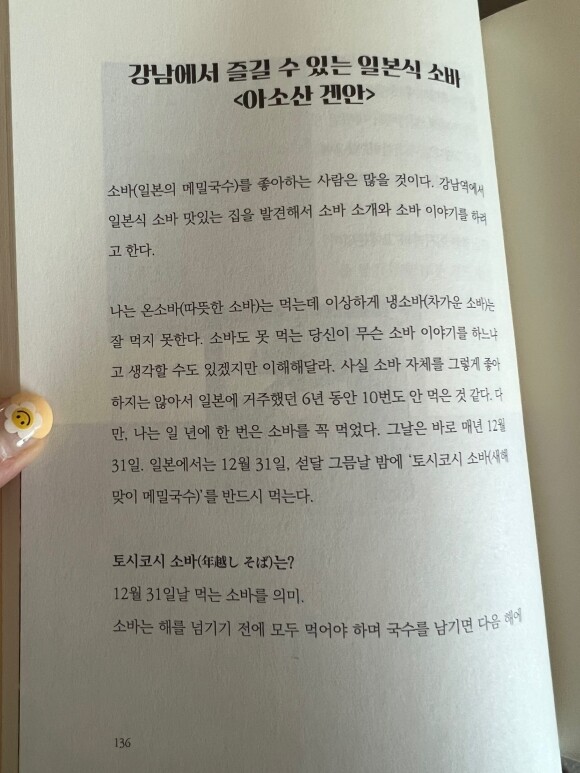 강남에서 즐길 수 있는 일본식 소바
<아소산 겐안>
소바(일본의 메밀국수)를 좋아하는 사람은 많을 것이다. 강남역에서
일본식 소바 맛있는 집을 발견해서 소바 소개와 소바 이야기를 하려
고 한다.
나는 온소바(따뜻한 소바)는 먹는데 이상하게 냉소바(차가운 소바)는
잘 먹지 못한다. 소바도 못 먹는 당신이 무슨 소바 이야기를 하느냐
고 생각할 수도 있겠지만 이해해달라. 사실 소바 자체를 그렇게 좋아
하지는 않아서 일본에 거주했던 6년 동안 10번도 안 먹은 것 같다. 다
만, 나는 일 년에 한 번은 소바를 꼭 먹었다. 그날은 바로 매년 12월
31일. 일본에서는 12월 31일, 섣달 그믐날 밤에 '토시코시 소바(새해
맞이 메밀국수)'를 반드시 먹는다.
토시코시 소바(年越し そば)는?
12월 31일날 먹는 소바를 의미.
소바는 해를 넘기기 전에 모두 먹어야 하며 국수를 남기면 다음 해에
136